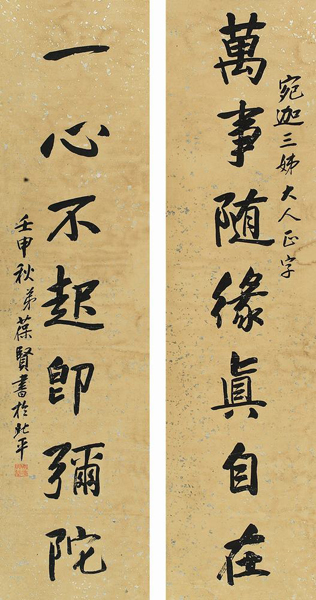 宛迦三姊大人正字
萬事随緣真自在
一心不起即彌陀
壬申秋弟葆賢書於北平